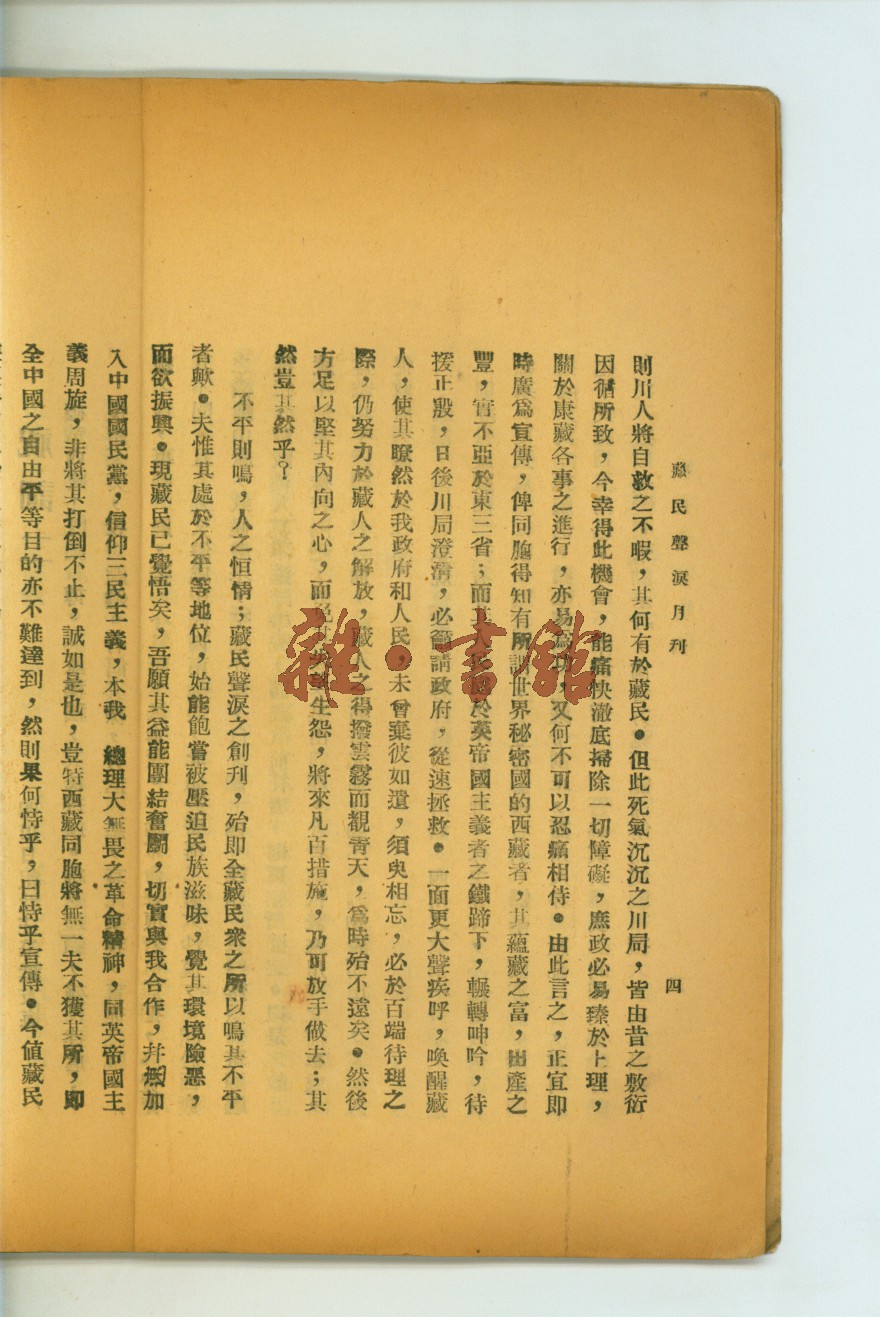 藏民聲淚月刊
四
則川人將自救之不暇，其何有於藏民。但此死氣沉沉之川局，皆由昔之敷衍
因循所致，今幸得此機會，能痛快澈底掃除一切障礙，庶政必易臻於上理，
關於康藏各事之進行，亦易為功，又何不可以忍痛相待。由此言之，正宜即
時廣為宣傳，俾同胞得知有所謂世界秘密國的西藏者，其蘊藏之富，出產之
豐，實不亞於東三省；而其人民於英帝國主義者之鐵蹄下，輾轉呻吟，待
援正殷，日後川局澄清，必籲請政府，從速拯救。一面更大聲疾呼，喚醒藏
人，使其瞭然於我政府和人民，未曾棄彼如遺，須臾相忘，必於百端待理之
際，仍努力於藏人之解放，藏人之得撥雲霧而觀青天，為時殆不遠矣。然後
方足以堅其內向之心，而免其失望生怨，將來凡百措施，乃可放手做去；其
然豈其然乎？
不平則鳴，人之恒情；藏民聲淚之創刋，殆即全藏民衆之所以鳴其不平
者歟。夫惟其處於不平等地位，始能飽嘗被壓迫民族滋味，覺其環境險惡，
而欲振興。現藏民已覺悟矣，吾願其益能團結奮鬭，切實與我合作，幷加
入中國國民黨，信仰三民主義，本我　總理大無畏之革命精神，同英帝國主
義周旋，非將其打倒不止，誠如是也，豈特西藏同胞將無一夫不獲其所，即
全中國之自由平等目的亦不難達到，然則果何恃乎，曰恃乎宣傳。今值藏民
雜·書館